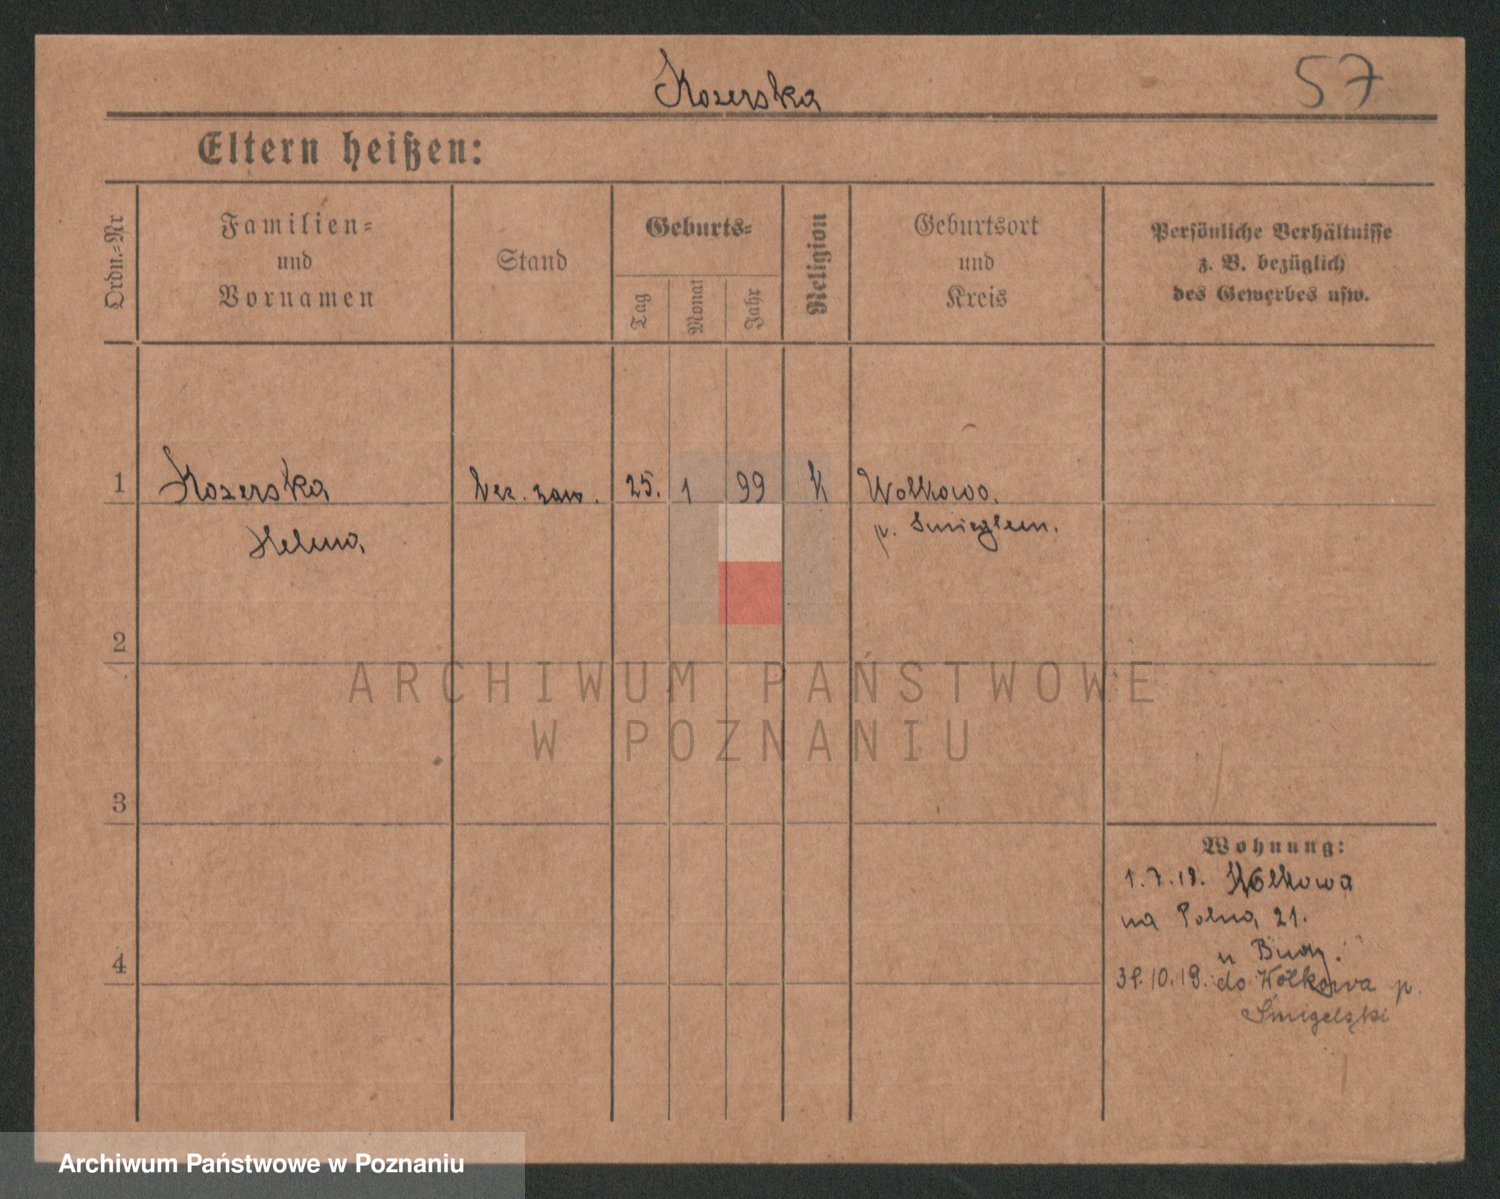 Kozerska
57
Eltern heißen:
Ordn.-Nr
Familien-
und
Vornamen
Stand
Geburts-
Tag
Monat
Jahr
Religion
Geburtsort
und
Kreis
Persönliche Verhältnisse
z. B. bezüglich
des Gewerbes usw.
1
Kozerska
bez. zaw.
25.
1
99
K
Wolkowo.
p. Smieglem.
Helena
2
ARCHIWUM PAŃSTWOWE
W POZNANIU
3
Wohnung:
1.7.19. Wólkowa
na Polna 21.
4
10.19. do Wólkowa p.
Śmigelski
Archiwum Państwowe w Poznaniu